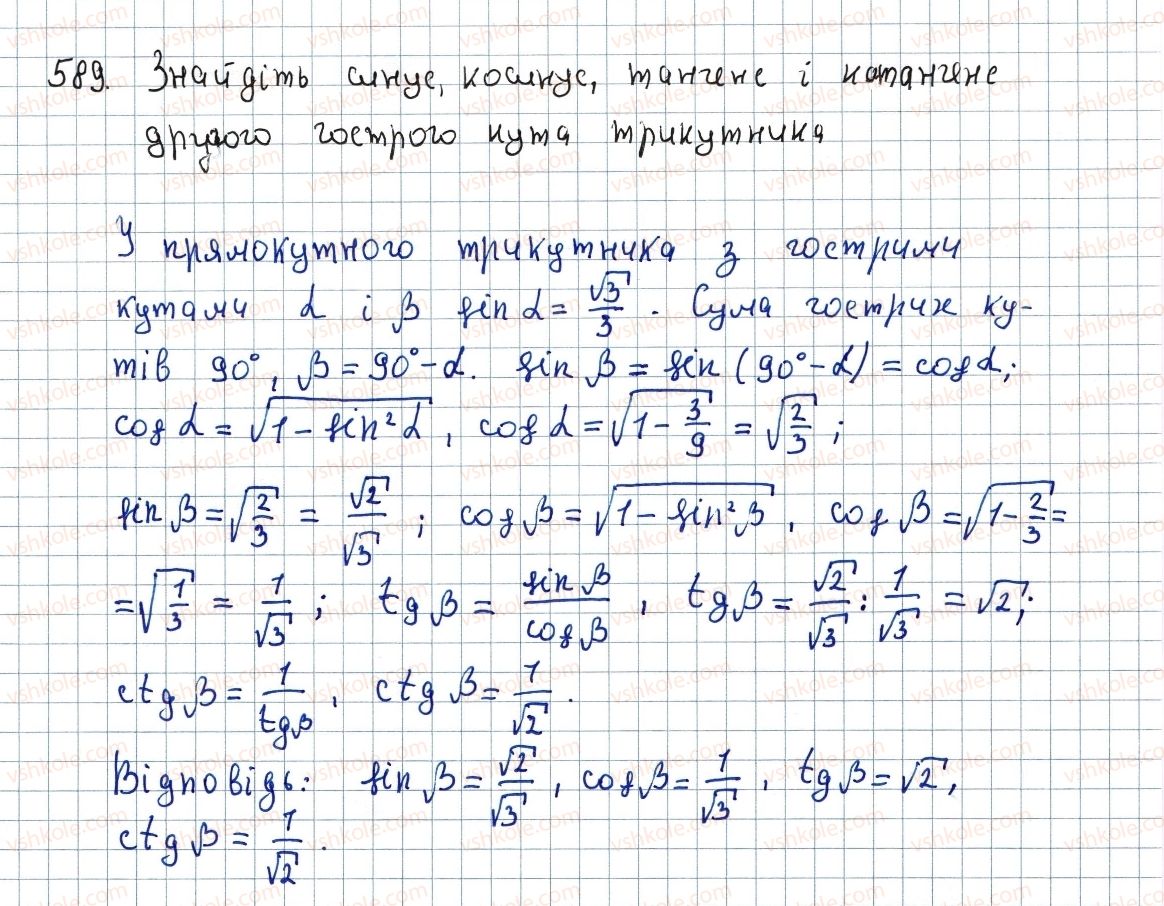 589. Знайдіть синус, косинус, тангенс і котангенс
другого гострого кута трикутника
У прямокутного трикутника з гострими
кутами α і β sin α = √3/3. Сума гострих ку-
тів 90°, β = 90° - α. sin β = sin (90° - α) = cos α;
cos α = √(1 - sin² α), cos α = √(1 - 3/9) = √(2/3);
sin β = √(2/3) = √2/√3; cos β = √(1 - sin² β), cos β = √(1 - 2/3) =
= √(1/3) = 1/√3; tg β = sin β/cos β, tg β = √2/√3 : 1/√3 = √2;
ctg β = 1/tg β, ctg β = 1/√2.
Відповідь: sin β = √2/√3, cos β = 1/√3, tg β = √2,
ctg β = 1/√2.